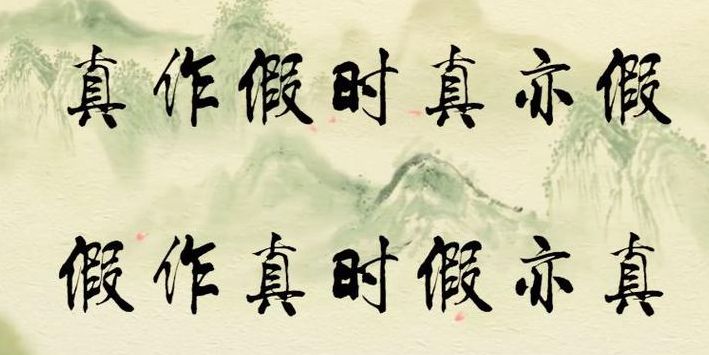 真作假时真亦假
假作真时假亦真